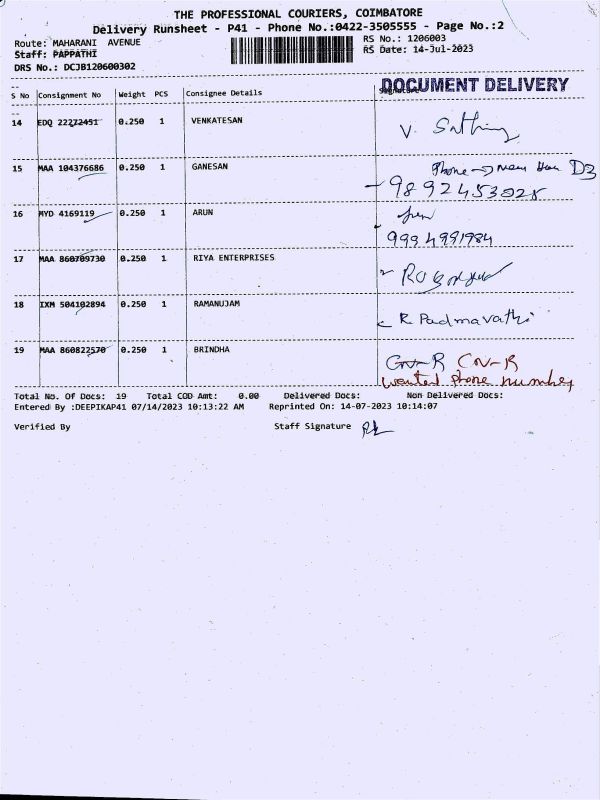 THE PROFESSIONAL COURIERS, COIMBATORE
Delivery Runsheet - P41 - Phone No.:0422-3505555 - Page No.:2
Route: MAHARANI AVENUE
RS No.: 1206003
Staff: PAPPATHI
RS Date: 14-Jul-2023
DRS No.: DCJB120600302
DOCUMENT DELIVERY
S No Consignment No Weight PCS Consignee Details Signature
14 EDQ 22272451 0.250 1 VENKATESAN V.
15 MAA 104376686 0.250 1 GANESAN Phone → D3
9892453028
16 MYD 4169119 0.250 1 ARUN
9994991984
17 MAA 860709730 0.250 1 RIYA ENTERPRISES
18 IXM 504102894 0.250 1 RAMANUJAM R Padmavathi
19 MAA 860822570 0.250 1 BRINDHA
wanted phone number
Total No. Of Docs: 19 Total COD Amt: 0.00 Delivered Docs: Non Delivered Docs:
Entered By :DEEPIKAP41 07/14/2023 10:13:22 AM Reprinted On: 14-07-2023 10:14:07
Verified By Staff Signature